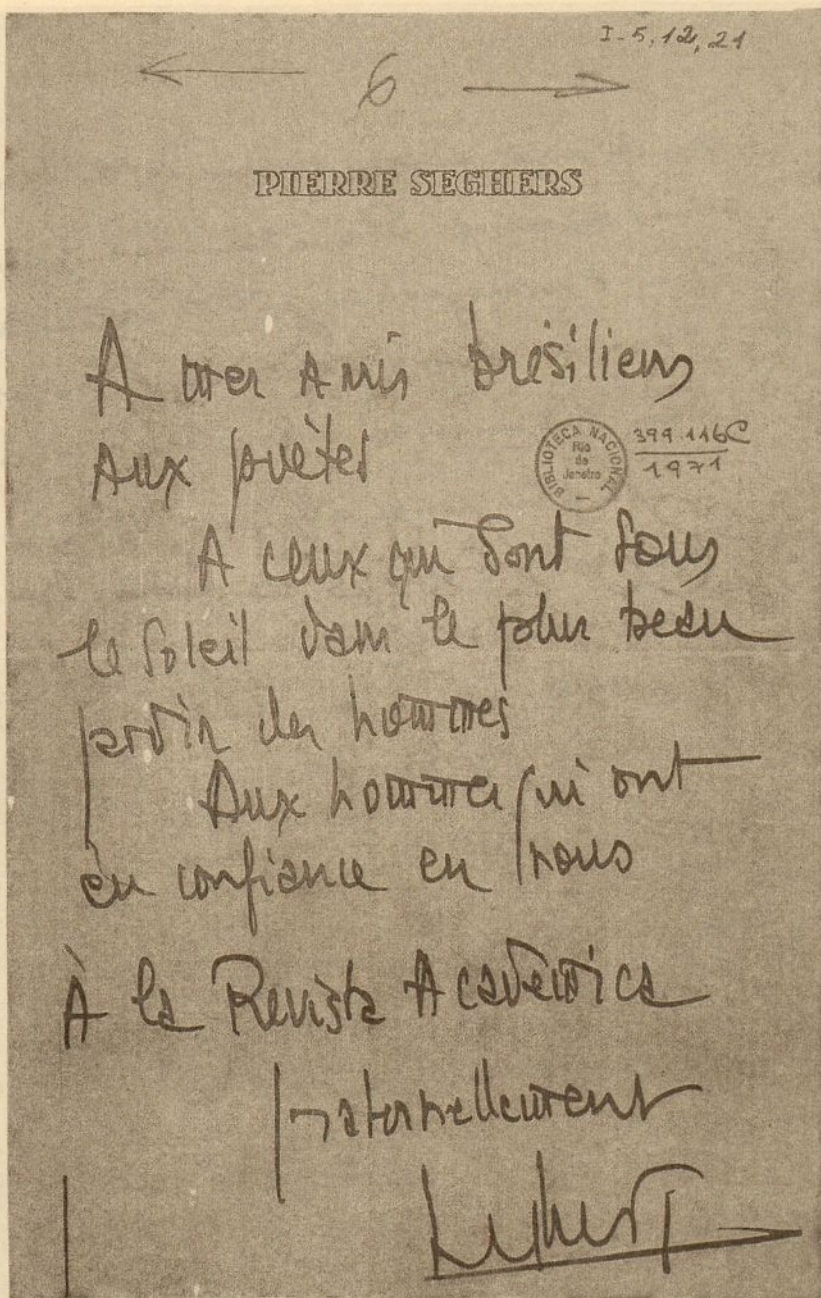 I-5,12,21
6
PIERRE SEGHERS
A mes amis brésiliens
aux poètes
BIBLIOTECA NACIONAL
Rio
de
Janeiro
399.116C
1971
A ceux qui sont sous
le soleil dans le plus beau
jardin des hommes
Aux hommes qui ont
eu confiance en nous
À la Revista Academica
fraternellement
Seghers